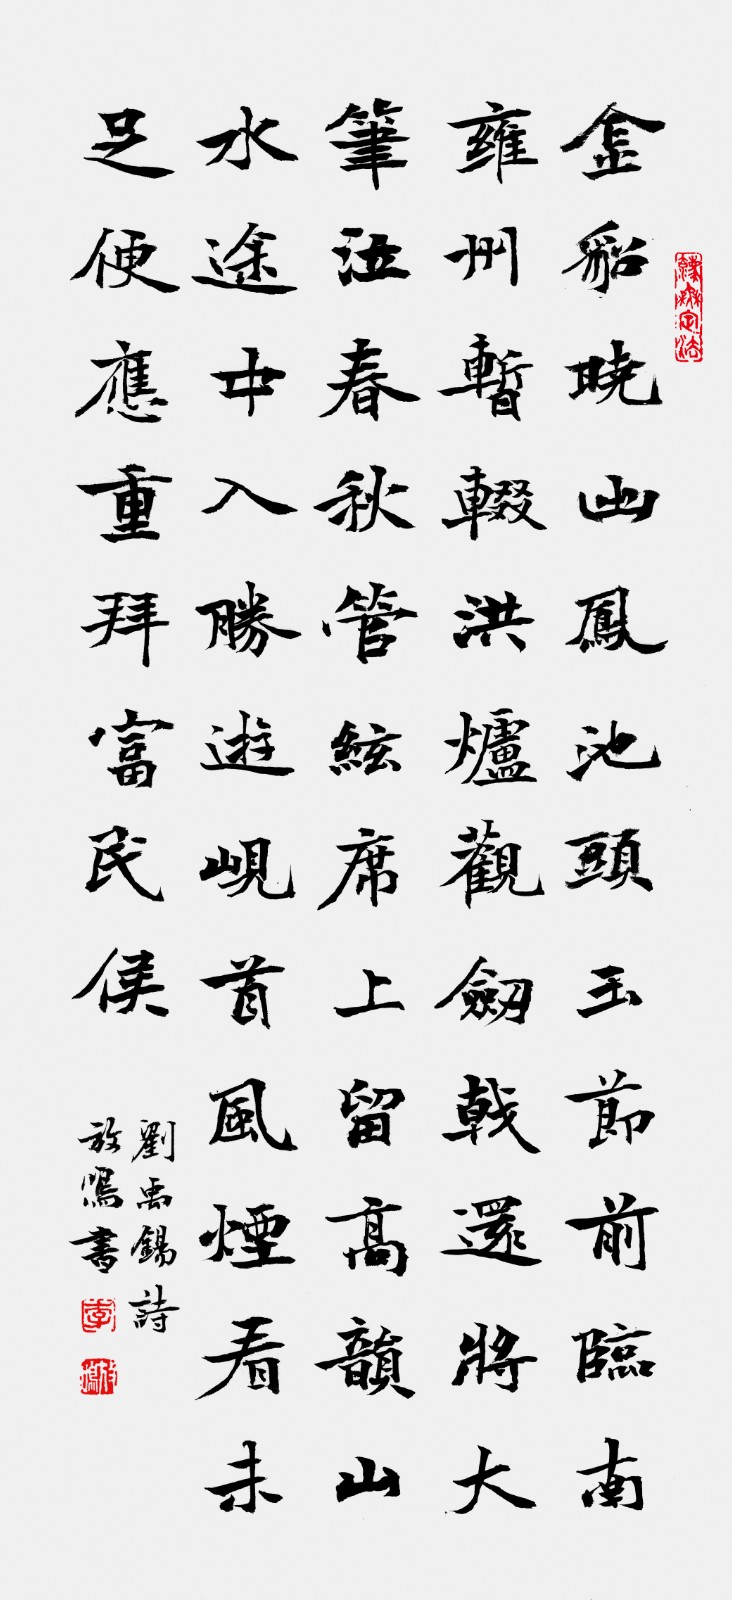 金貂曉出鳳池頭玉節前臨南
雍州暫輟洪爐觀劍戟還將大
筆注春秋管絃席上留高韻山
水途中入勝遊峴首風煙看未
足便應重拜富民侯
劉禹錫詩
放鳴書